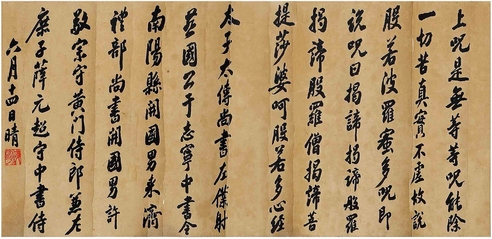 上呪是無等等呪能除
一切苦真實不虛故說
般若波羅蜜多呪即
說呪曰揭諦揭諦般羅
揭諦般羅僧揭諦菩
提莎婆呵般若多心經
太子太傅尚書左僕射
燕國公于志寧中書令
南陽縣開國男來濟
禮部尚書開國男許
敬宗守黃門侍郎兼左
庶子薛元超守中書侍
六月十四日晴